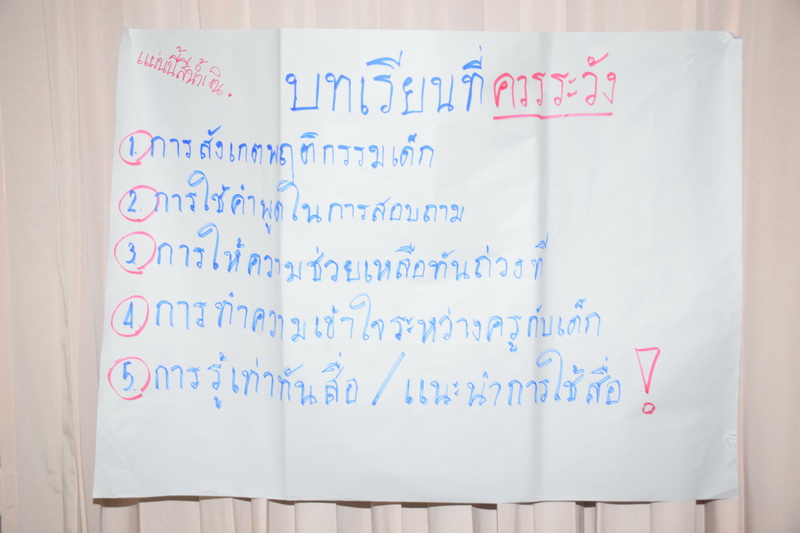 แผ่นนี้สีน้ำเงิน.
บทเรียนที่ควรระวัง
1. การสังเกตพฤติกรรมเด็ก
2. การใช้คำพูดในการสอบถาม
3. การให้ความช่วยเหลือทันถ่วงที
4. การทำความเข้าใจระหว่างครูกับเด็ก
5. การรู้เท่าทันสื่อ / แนะนำการใช้สื่อ !